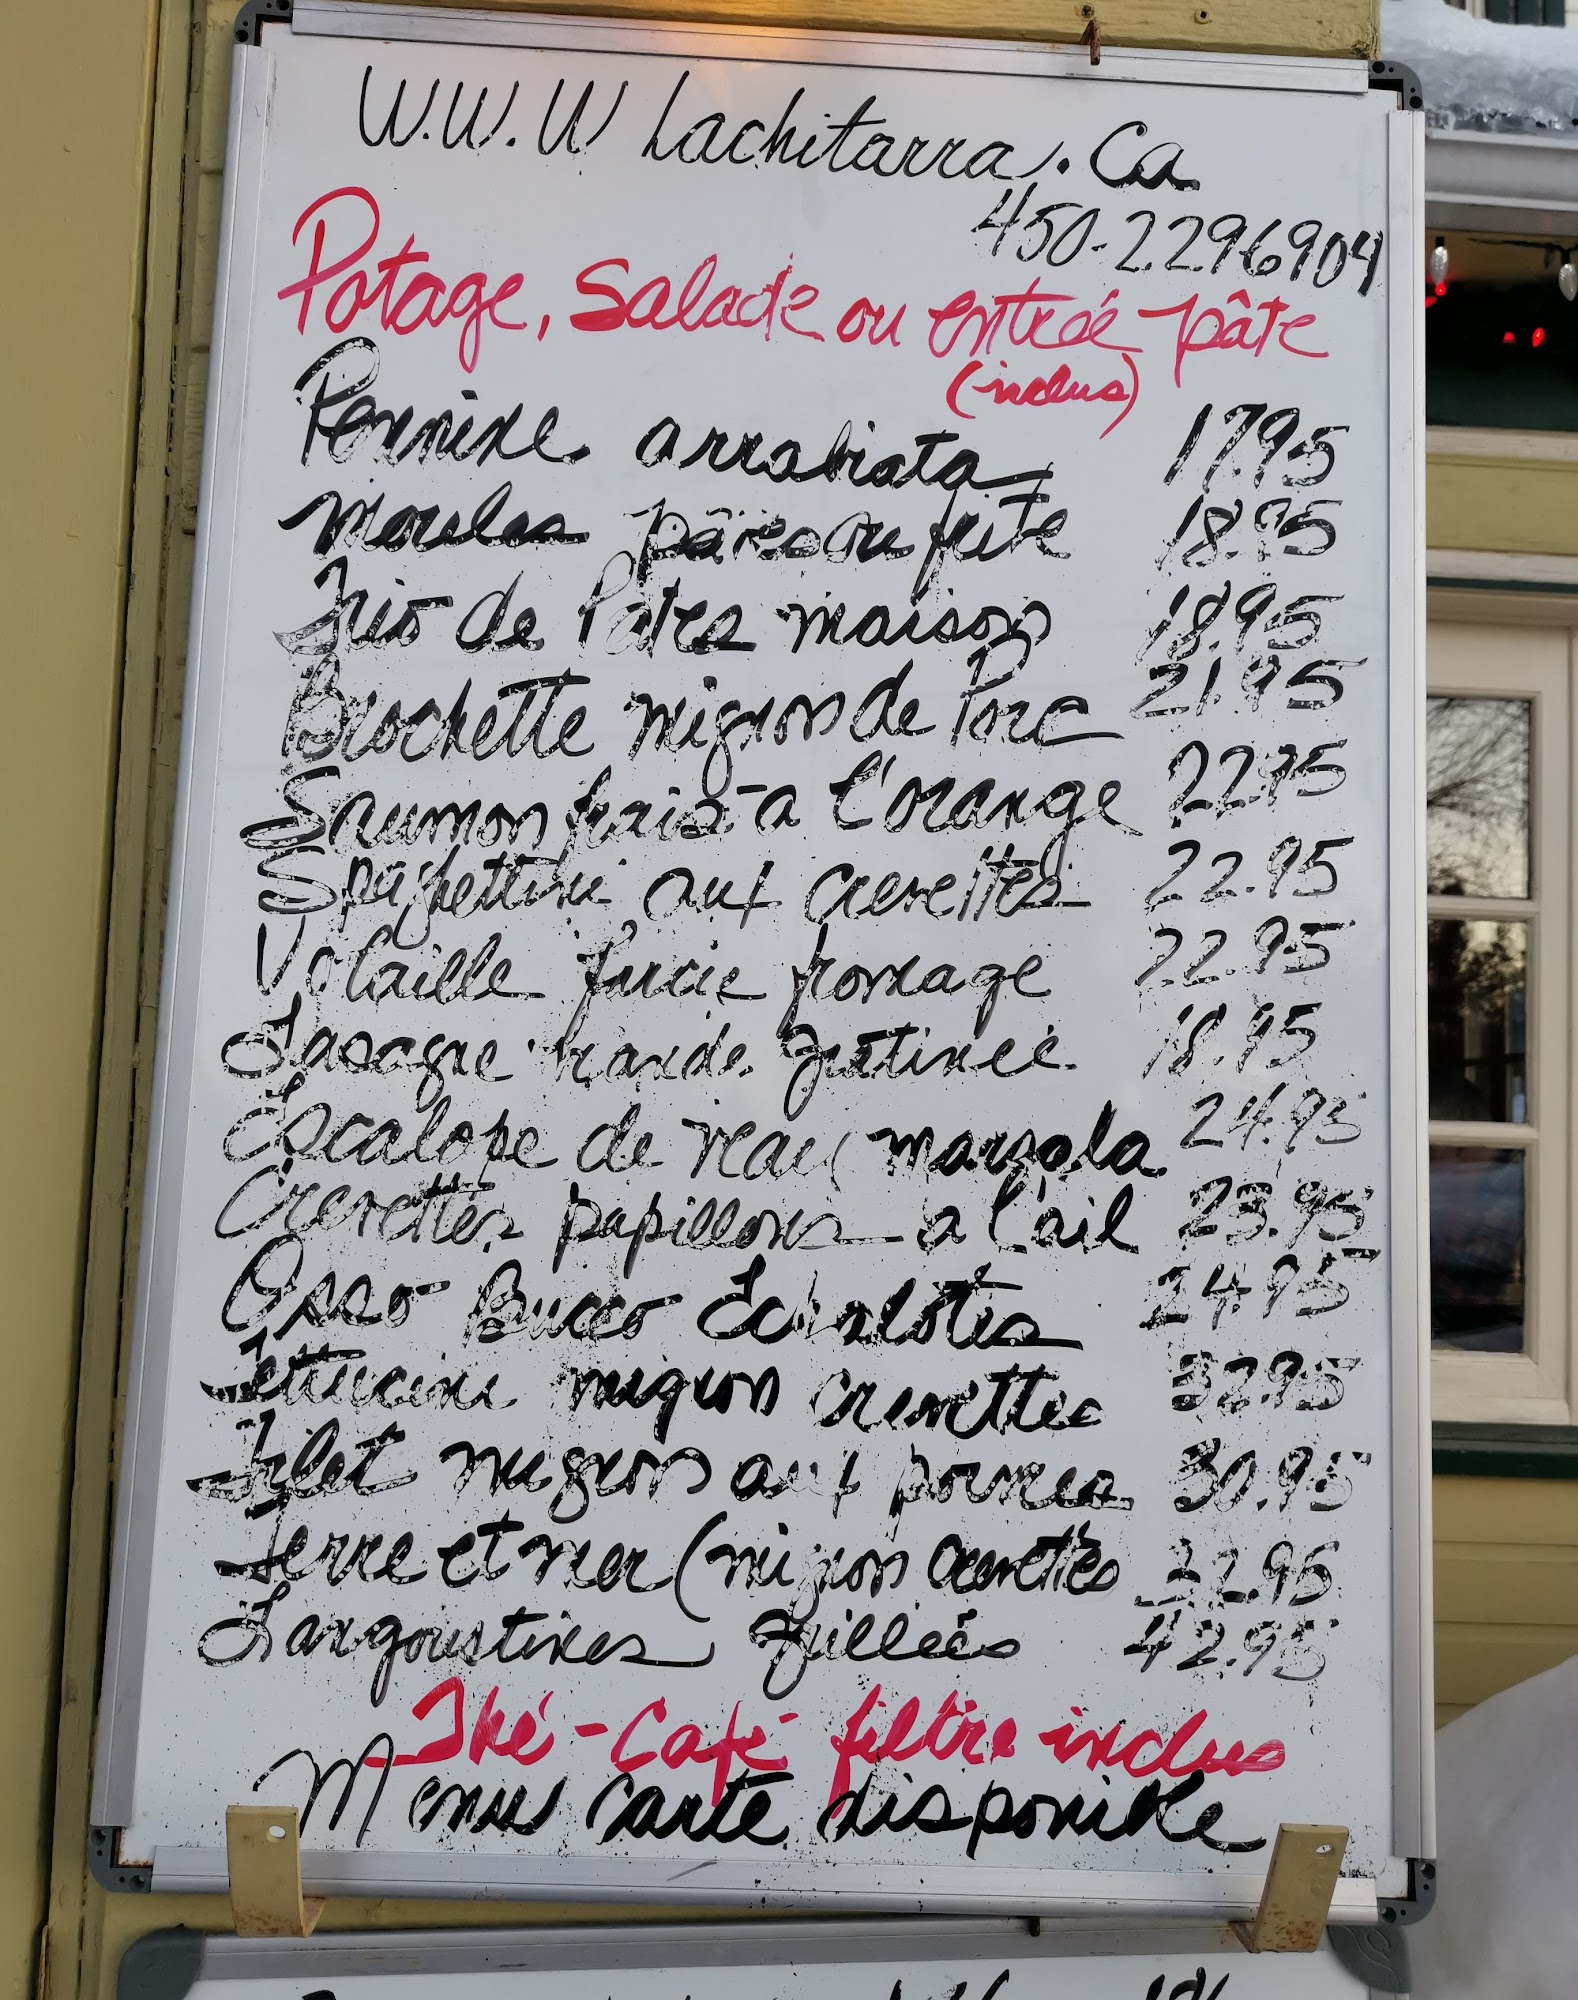 W.W.W Lachitarra.Ca
450-2296904
Potage, Salade ou entreé pâte
(inclus)
Pennine arrabiata 17.95
Moules pâtes ou frite 18.95
Trio de Pates maison 18.95
Brochette mignon de Porc 21.95
Saumon frais à l'orange 22.95
Spaghettini aux crevettes 22.95
Volaille farcie fromage 22.95
Lasagne viande gratinée 18.95
Escalope de veau marsala 24.95
Crevettes papillons a l'ail 23.95
Osso Bucco Echalotes 24.95
Fettuccini mignon crevettes 32.95
Filet mignon aux poivres 30.95
Terre et mer (mignon crevettes 32.95
Langoustines grillées 42.95
Thé - Café filtre inclus
Menu carte disponible